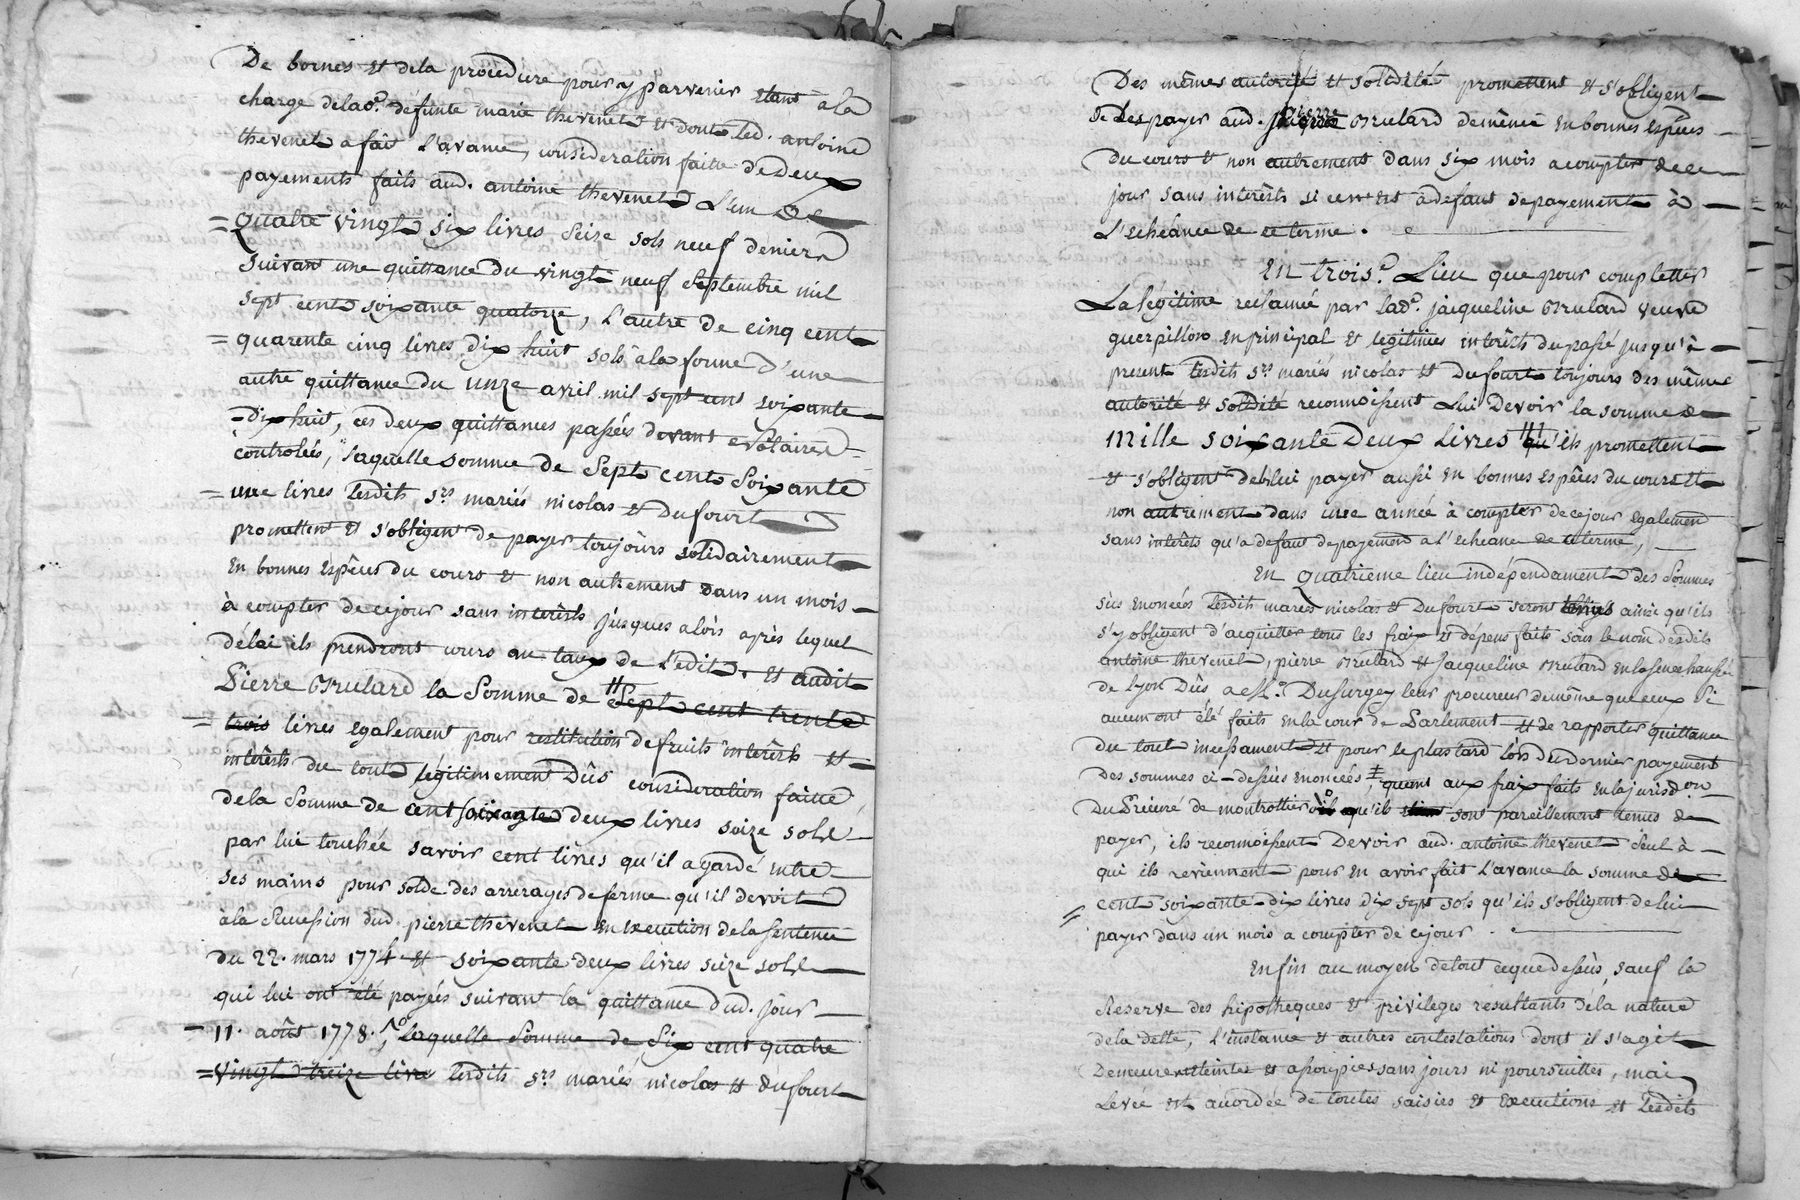 De bornes et dela procedure pour y parvenir etant à la
charge delad.e deffunte marie thevenet et dont led. antoine
thevenet a fait l'avance, consideration faitte de deux
payements faits aud. antoine thevenet L'un de
= quatre vingt six livres seize sols neuf deniers
suivant une quittance du vingt neuf septembre mil
sept cent soixante quatorze, l'autre de cinq cent
= quarente cinq livres dix huit sols à la forme d'une
autre quittance du unze avril mil sept cent soixante
=dix huit, ces deux quittances passées devant Nottaires
controlées, laquelle somme de Sept cent Soixante
= une livres lesdits srs mariés nicolas et Dufourt
promettent et s'obligent de payer toujours solidairement
en bonnes espêces du cours et non autrement dans un mois
à compter de ce jour sans interêts jusques alors après lequel
délai ils prendront cours au taux de l'edit. et audit
Pierre Brulard la Somme de Sept cent trente
= trois livres egalement pour restitution de fruits interêts et
interêts du tout légitimement Dûs consideration faitte
dela Somme de cent soixante deux livres seize sols
par lui touchée savoir cent livres qu'il a gardé entre
ses mains pour solde des arrerages de ferme qu'il devoit
à la succession dud. pierre thevenet en execution de la sentence
du 22. mars 1774 et soixante deux livres seize sols
qui lui ont été payées suivant la quittance dud. jour
= 11. août 1778. laquelle Somme de Six cent quatre
=vingt treize livre lesdits srs mariés nicolas et dufourt
Des mêmes autorité et solidité promettent et s'obligent
De les payer aud. pierre Brulard de même en bonnes espêces
du cours et non autrement dans six mois a compter de ce
jour sans interêts si ce n'est à defaut de payement à
L'echéance de ce terme.
En trois.e Lieu que pour completter
La légitime reclamée par lad.e jacqueline Brulard veuve
guerpillon en principal et legitimes interêts du passé jusqu'à
present lesdits srs mariés nicolas et Dufourt toujours des même
autorité et solidité reconnoissent lui Devoir la somme de
Mille soixante Deux Livres qu'ils promettent
et s'obligent de lui payer aussi en bonnes espêces du cours et
non autrement dans une année à compter de ce jour egalement
sans interêts qu'a defaut de payement a l'echeance de ce terme,
En quatrieme lieu indépendament des Sommes
sus enoncées lesdits mariés nicolas et Dufourt seront tenus ainsi qu'ils
s'y obligent d'acquitter tous les fraix et dépens faits sous le nom desdits
antoine thevenet, pierre Brulard et Jacqueline Brulard en la senechaussée
de lyon Dûs a Me Dusurgey leur procureur de même que ceux si
aucun ont été faits en la cour de Parlement et de rapporter quittance
du tout incessament et pour le plus tard lors du dernier payement
des sommes ci-dessus enoncées, quant aux fraix faits en la jurisd.on
Du Prieuré de montrottier qu'ils sont pareillement tenus de
payer, ils reconnoissent Devoir aud. antoine thevenet seul à
qui ils reviennent pour en avoir fait l'avance la somme de
cent soixante-dix livres dix sept sols qu'ils s'obligent de lui
payer dans un mois a compter de ce jour.
Enfin au moyen de tout ce que dessus, sauf la
Reserve des hipotheques et privileges resultants de la nature
de la dette, l'instance et autres contestations dont il s'agit
Demeure eteintes et assoupies sans jours ni poursuittes, mai
Levée est accordée de toutes saisies et executions et lesdits